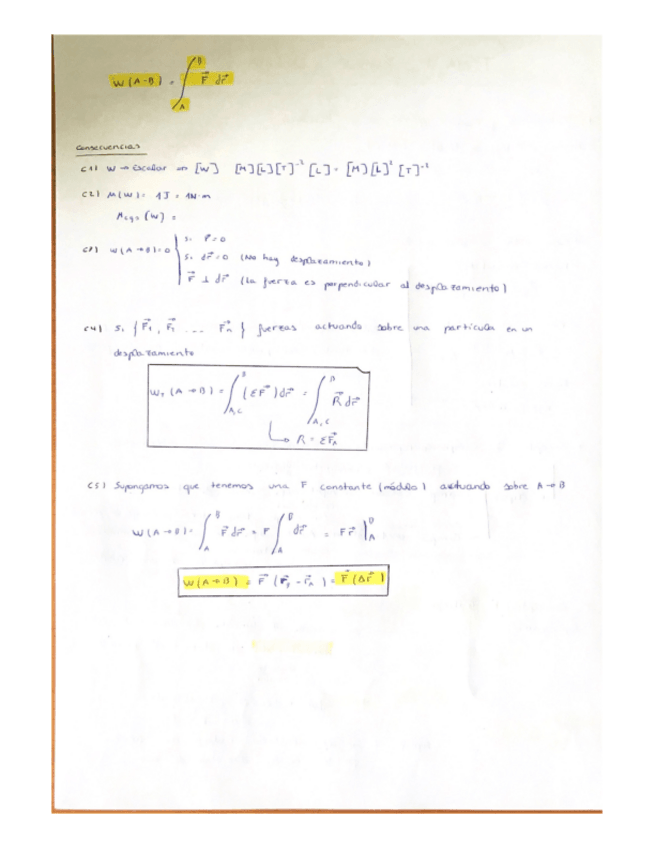 W(A-B) = ∫_A^B F⃗ dr⃗
Consecuencias
C1) W → Escalar → [W] [M][L][T]⁻² [L] = [M][L]² [T]⁻²
C2) M(W) = 1J = 1N·m
M cgs (W) =
C3) W(A→B)=0 { Si F⃗=0
Si dr⃗=0 (No hay desplazamiento)
F⃗ ⊥ dr⃗ (La fuerza es perpendicular al desplazamiento)
C4) Si {F⃗₁, F⃗₁ ... F⃗n} fuerzas actuando sobre una partícula en un
desplazamiento
W_T (A→B) = ∫_{A,C}^B (ΣF⃗)dr⃗ = ∫_{A,C}^B R⃗ dr⃗
↳ R = ΣF⃗n
C5) Supongamos que tenemos una F constante (módulo) actuando sobre A→B
W(A→B) = ∫_A^B F⃗ dr⃗ = F ∫_A^B dr⃗ = F r⃗ |_A^B
W(A→B) = F⃗ (r⃗_B - r⃗_A) = F⃗ (Δr⃗)